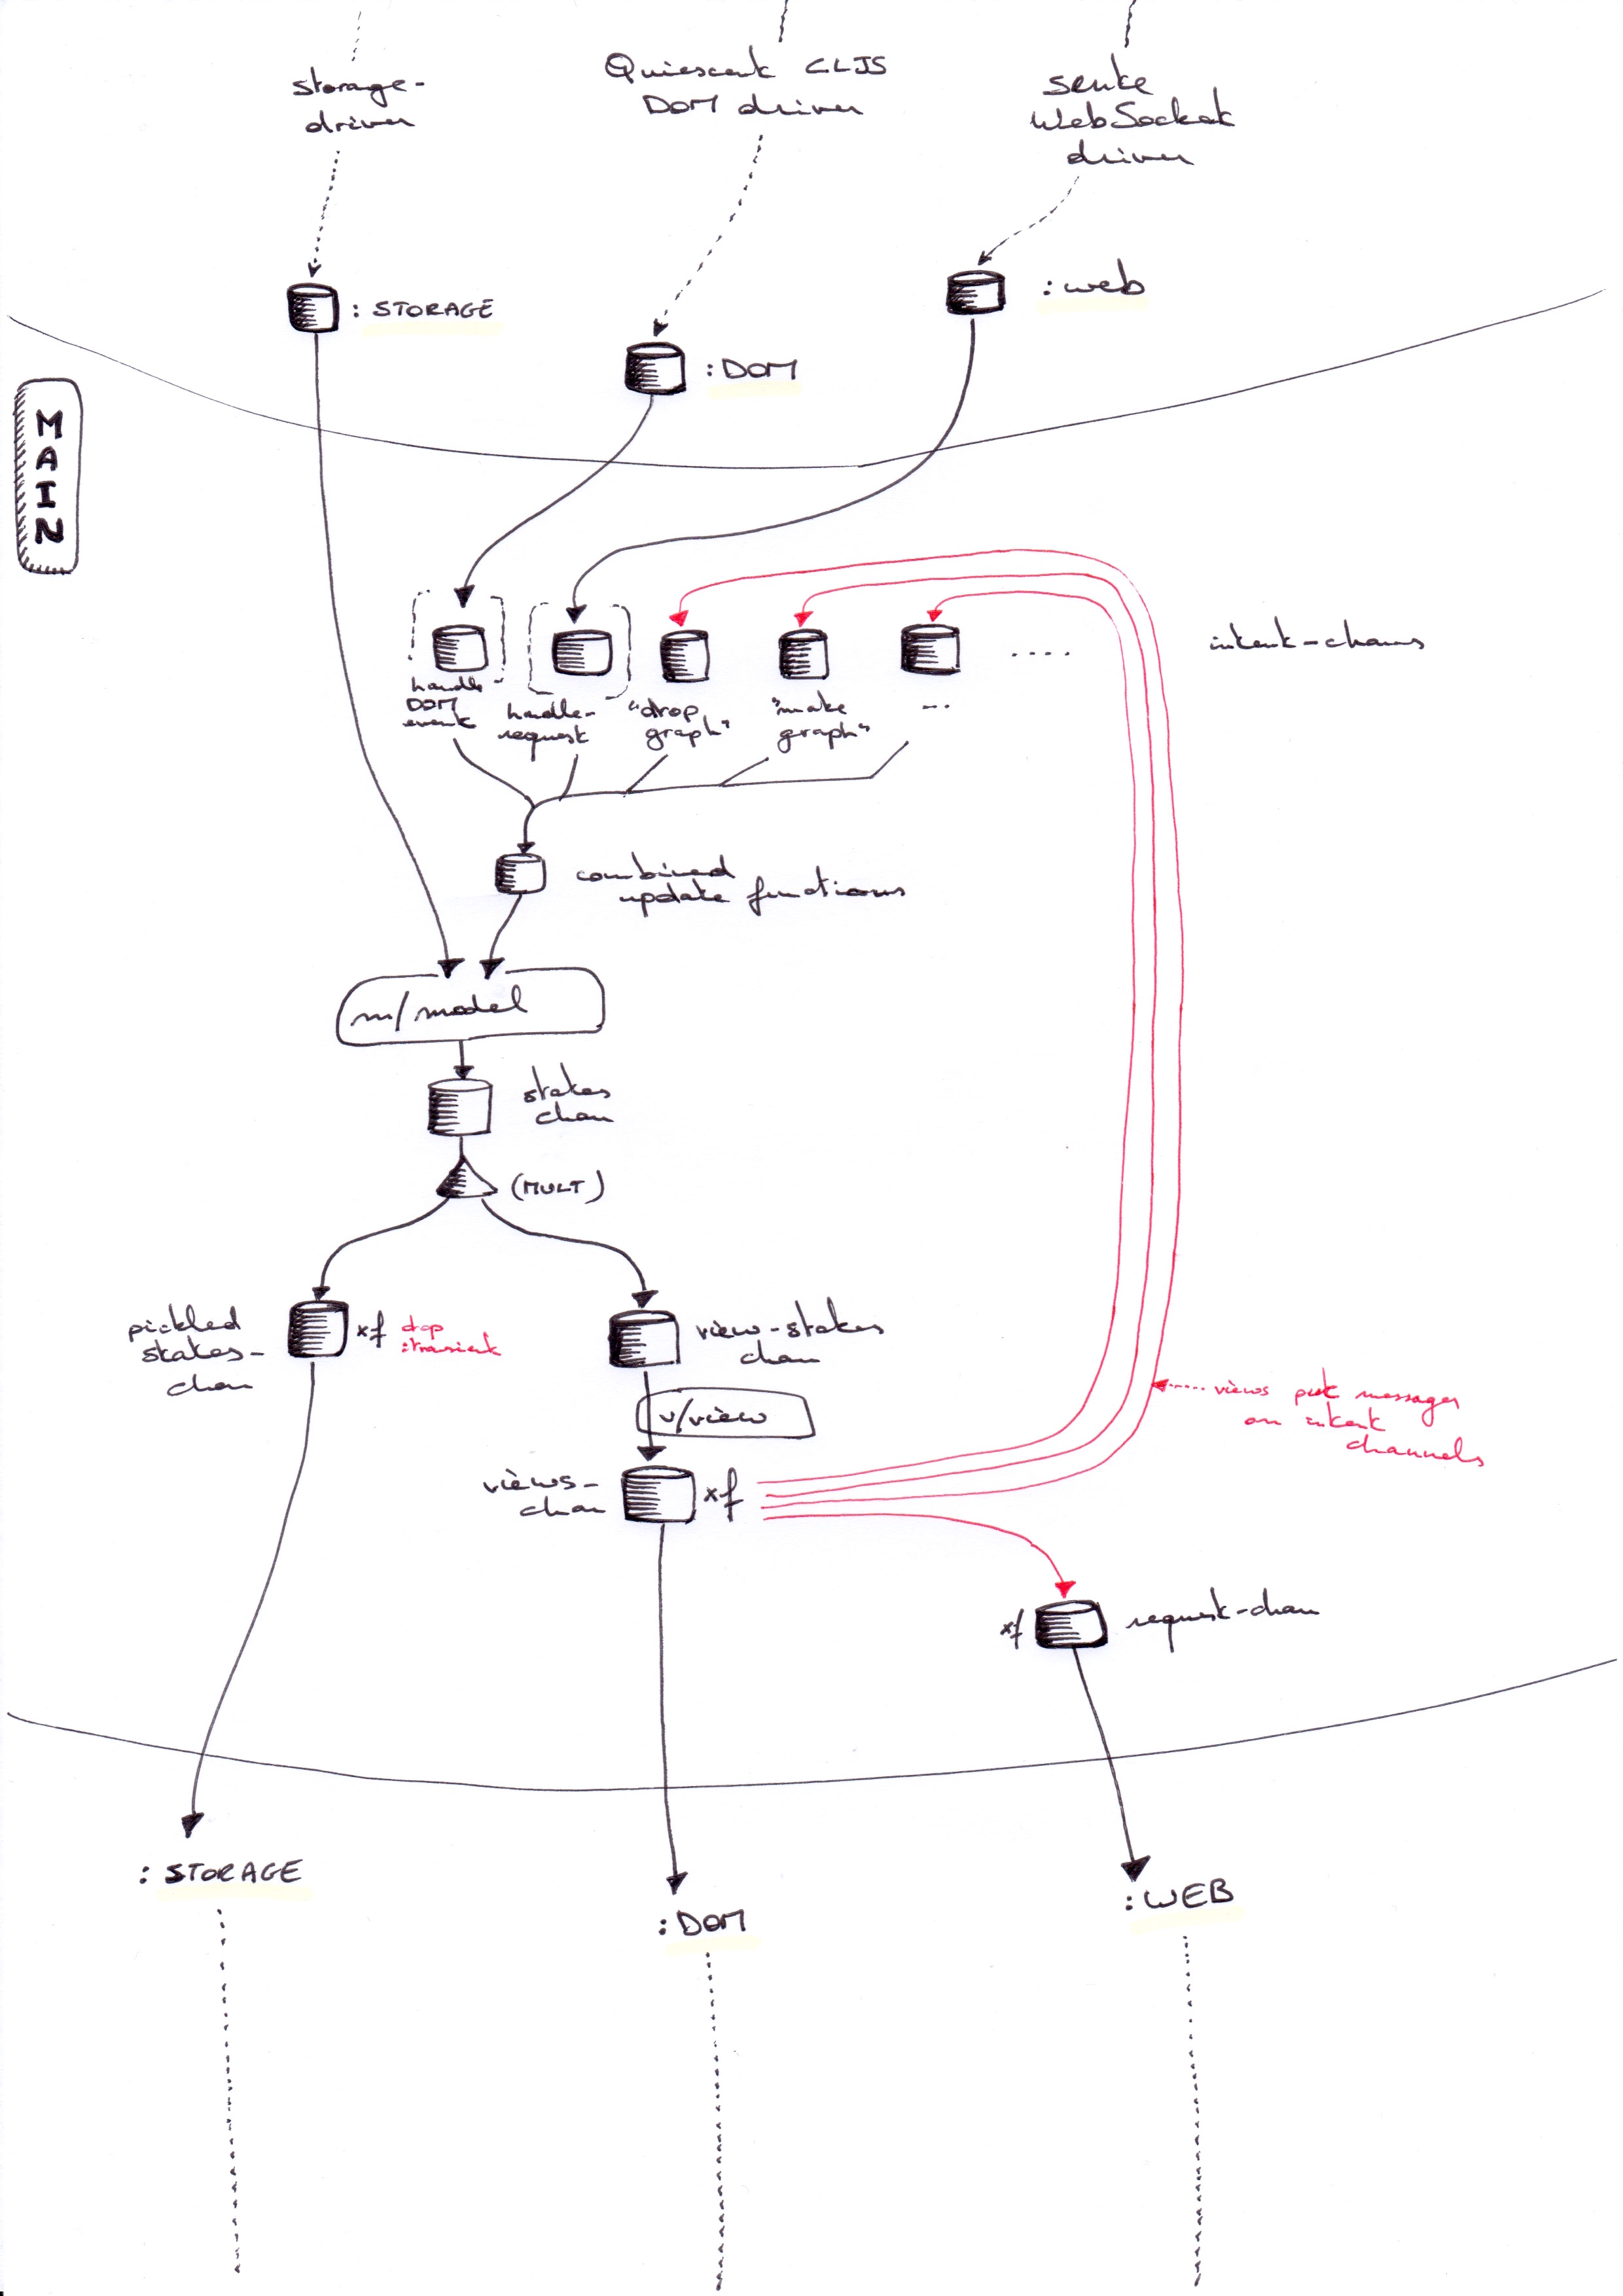 storage-
driver
Quiescent CLJS
DOM driver
sente
WebSocket
driver
: STORAGE
: DOM
: web
MAIN
intent-chans
handle
DOM
event
handle-
request
"drop
graph"
"make
graph"
...
....
combined
update functions
m/model
states
chan
(MULT)
pickled
states-
chan
xf
drop
:transient
view-states
chan
v/view
views-
chan
xf
views put messages
on intent
channels
xf
request-chan
: STORAGE
: DOM
: WEB